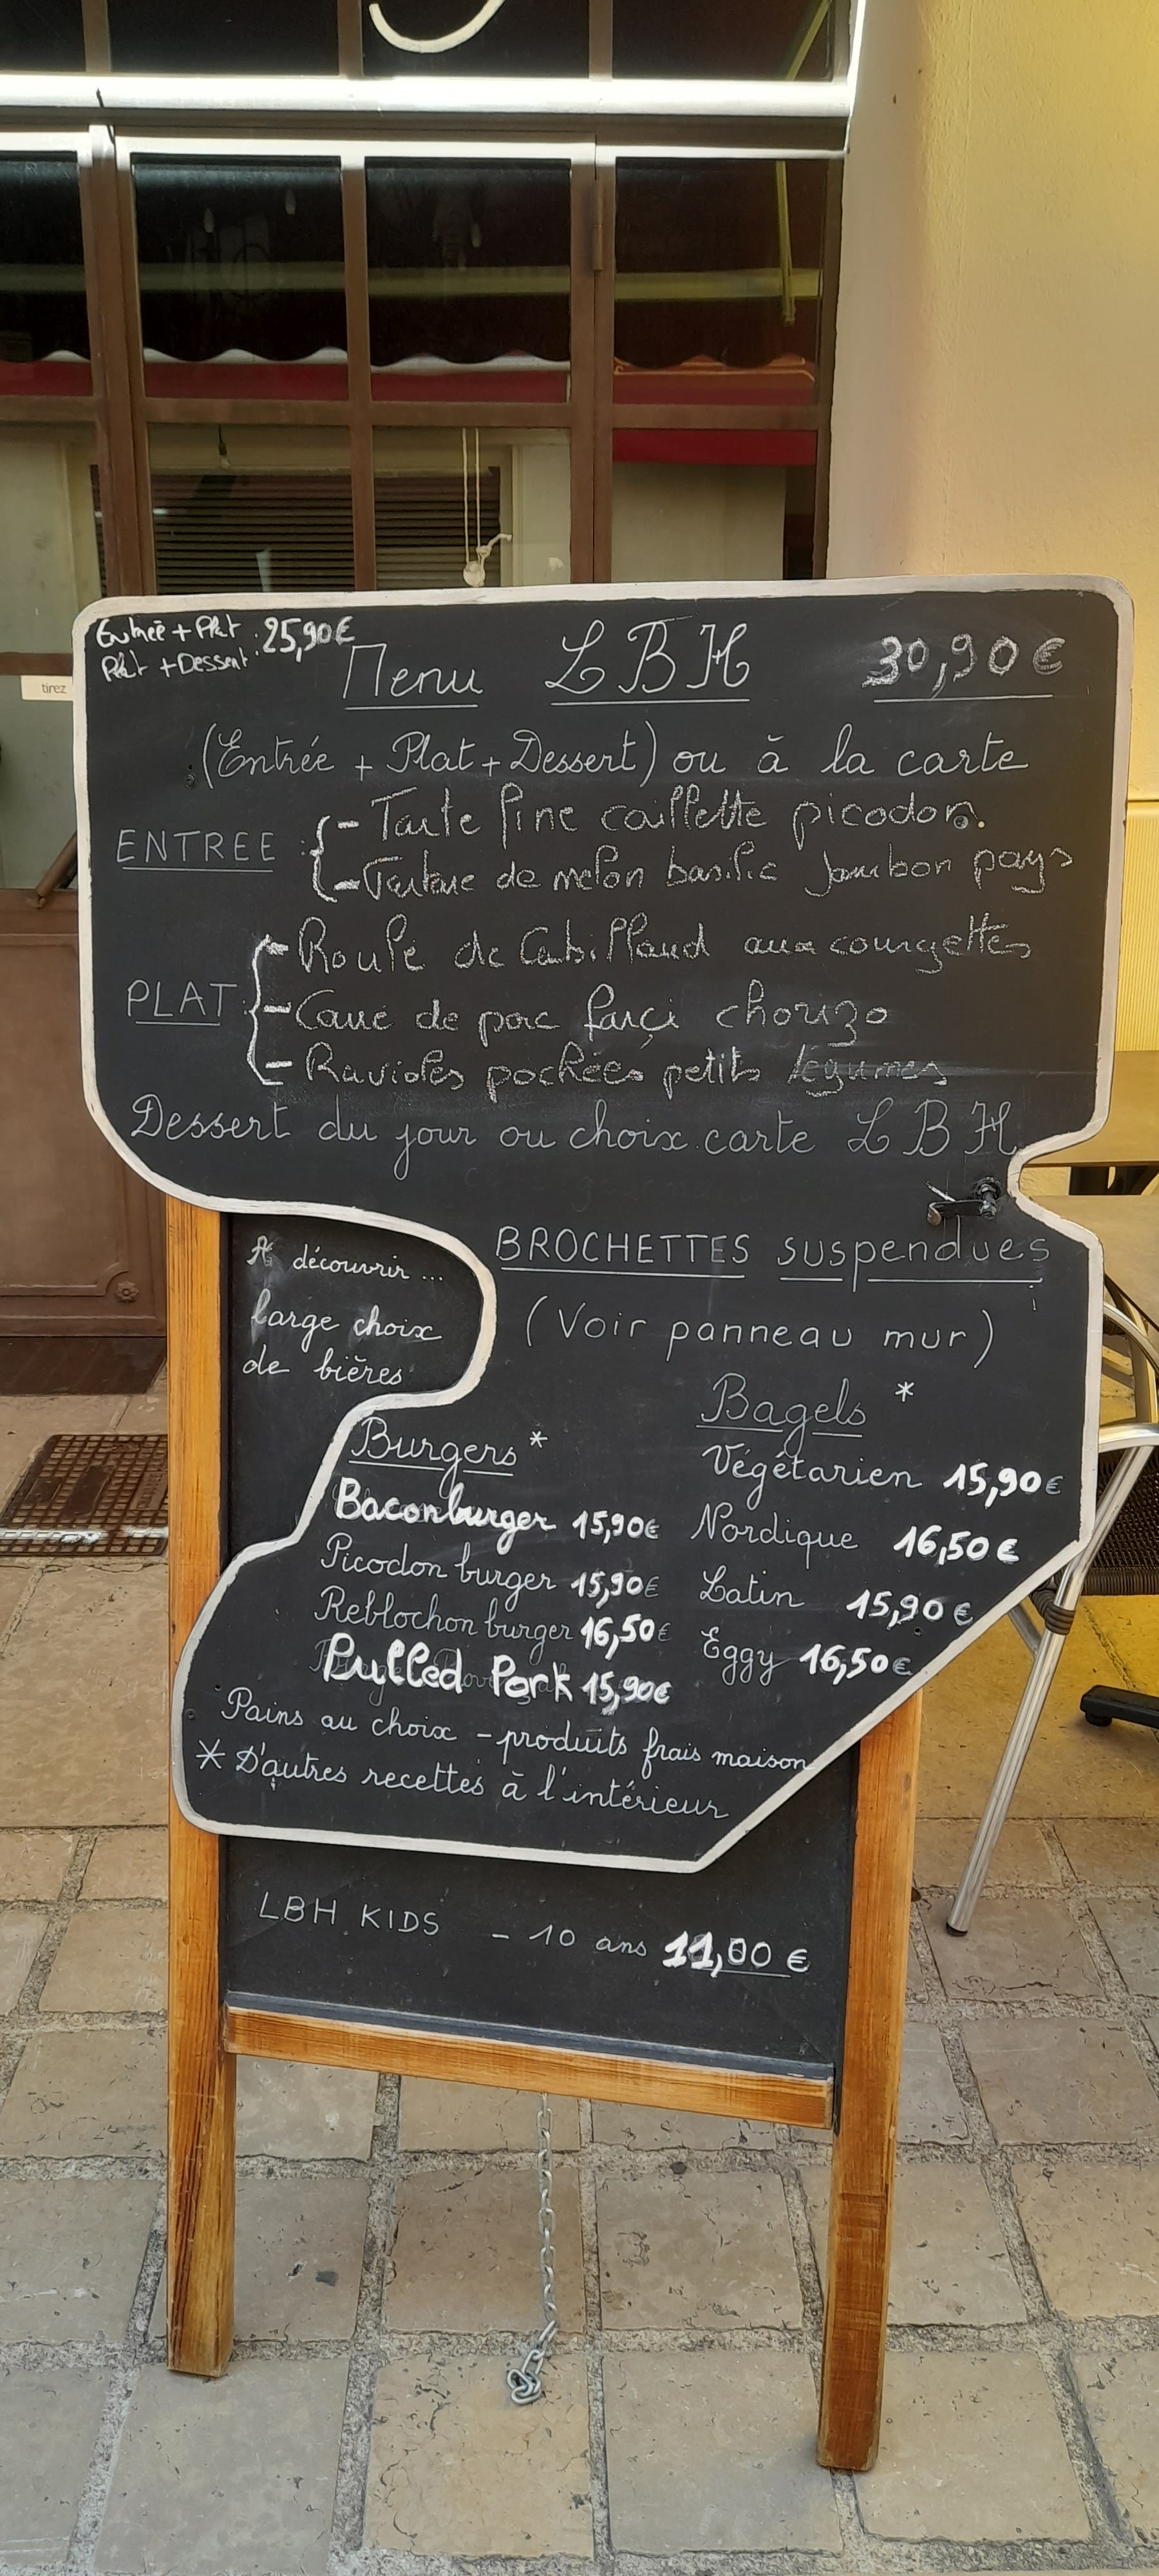 Entrée + Plat
Plat + Dessert : 25,90€
Menu LBH 30,90€
(Entrée + Plat + Dessert) ou à la carte
ENTREE : - Tarte fine caillette picodon.
- Tartare de melon basilic Jambon pays
PLAT : - Roulé de Cabillaud aux courgettes
- Carré de porc farçi chorizo
- Ravioles pochées petits légumes
Dessert du jour ou choix carte LBH
A découvrir ...
large choix
de bières
BROCHETTES suspendues
(Voir panneau mur)
Burgers *
Baconburger 15,90€
Picodon burger 15,90€
Reblochon burger 16,50€
Pulled Pork 15,90€
Bagels *
Végétarien 15,90€
Nordique 16,50€
Latin 15,90€
Eggy 16,50€
Pains au choix - produits frais maison
* D'autres recettes à l'intérieur
LBH KIDS - 10 ans 11,00 €
tirez